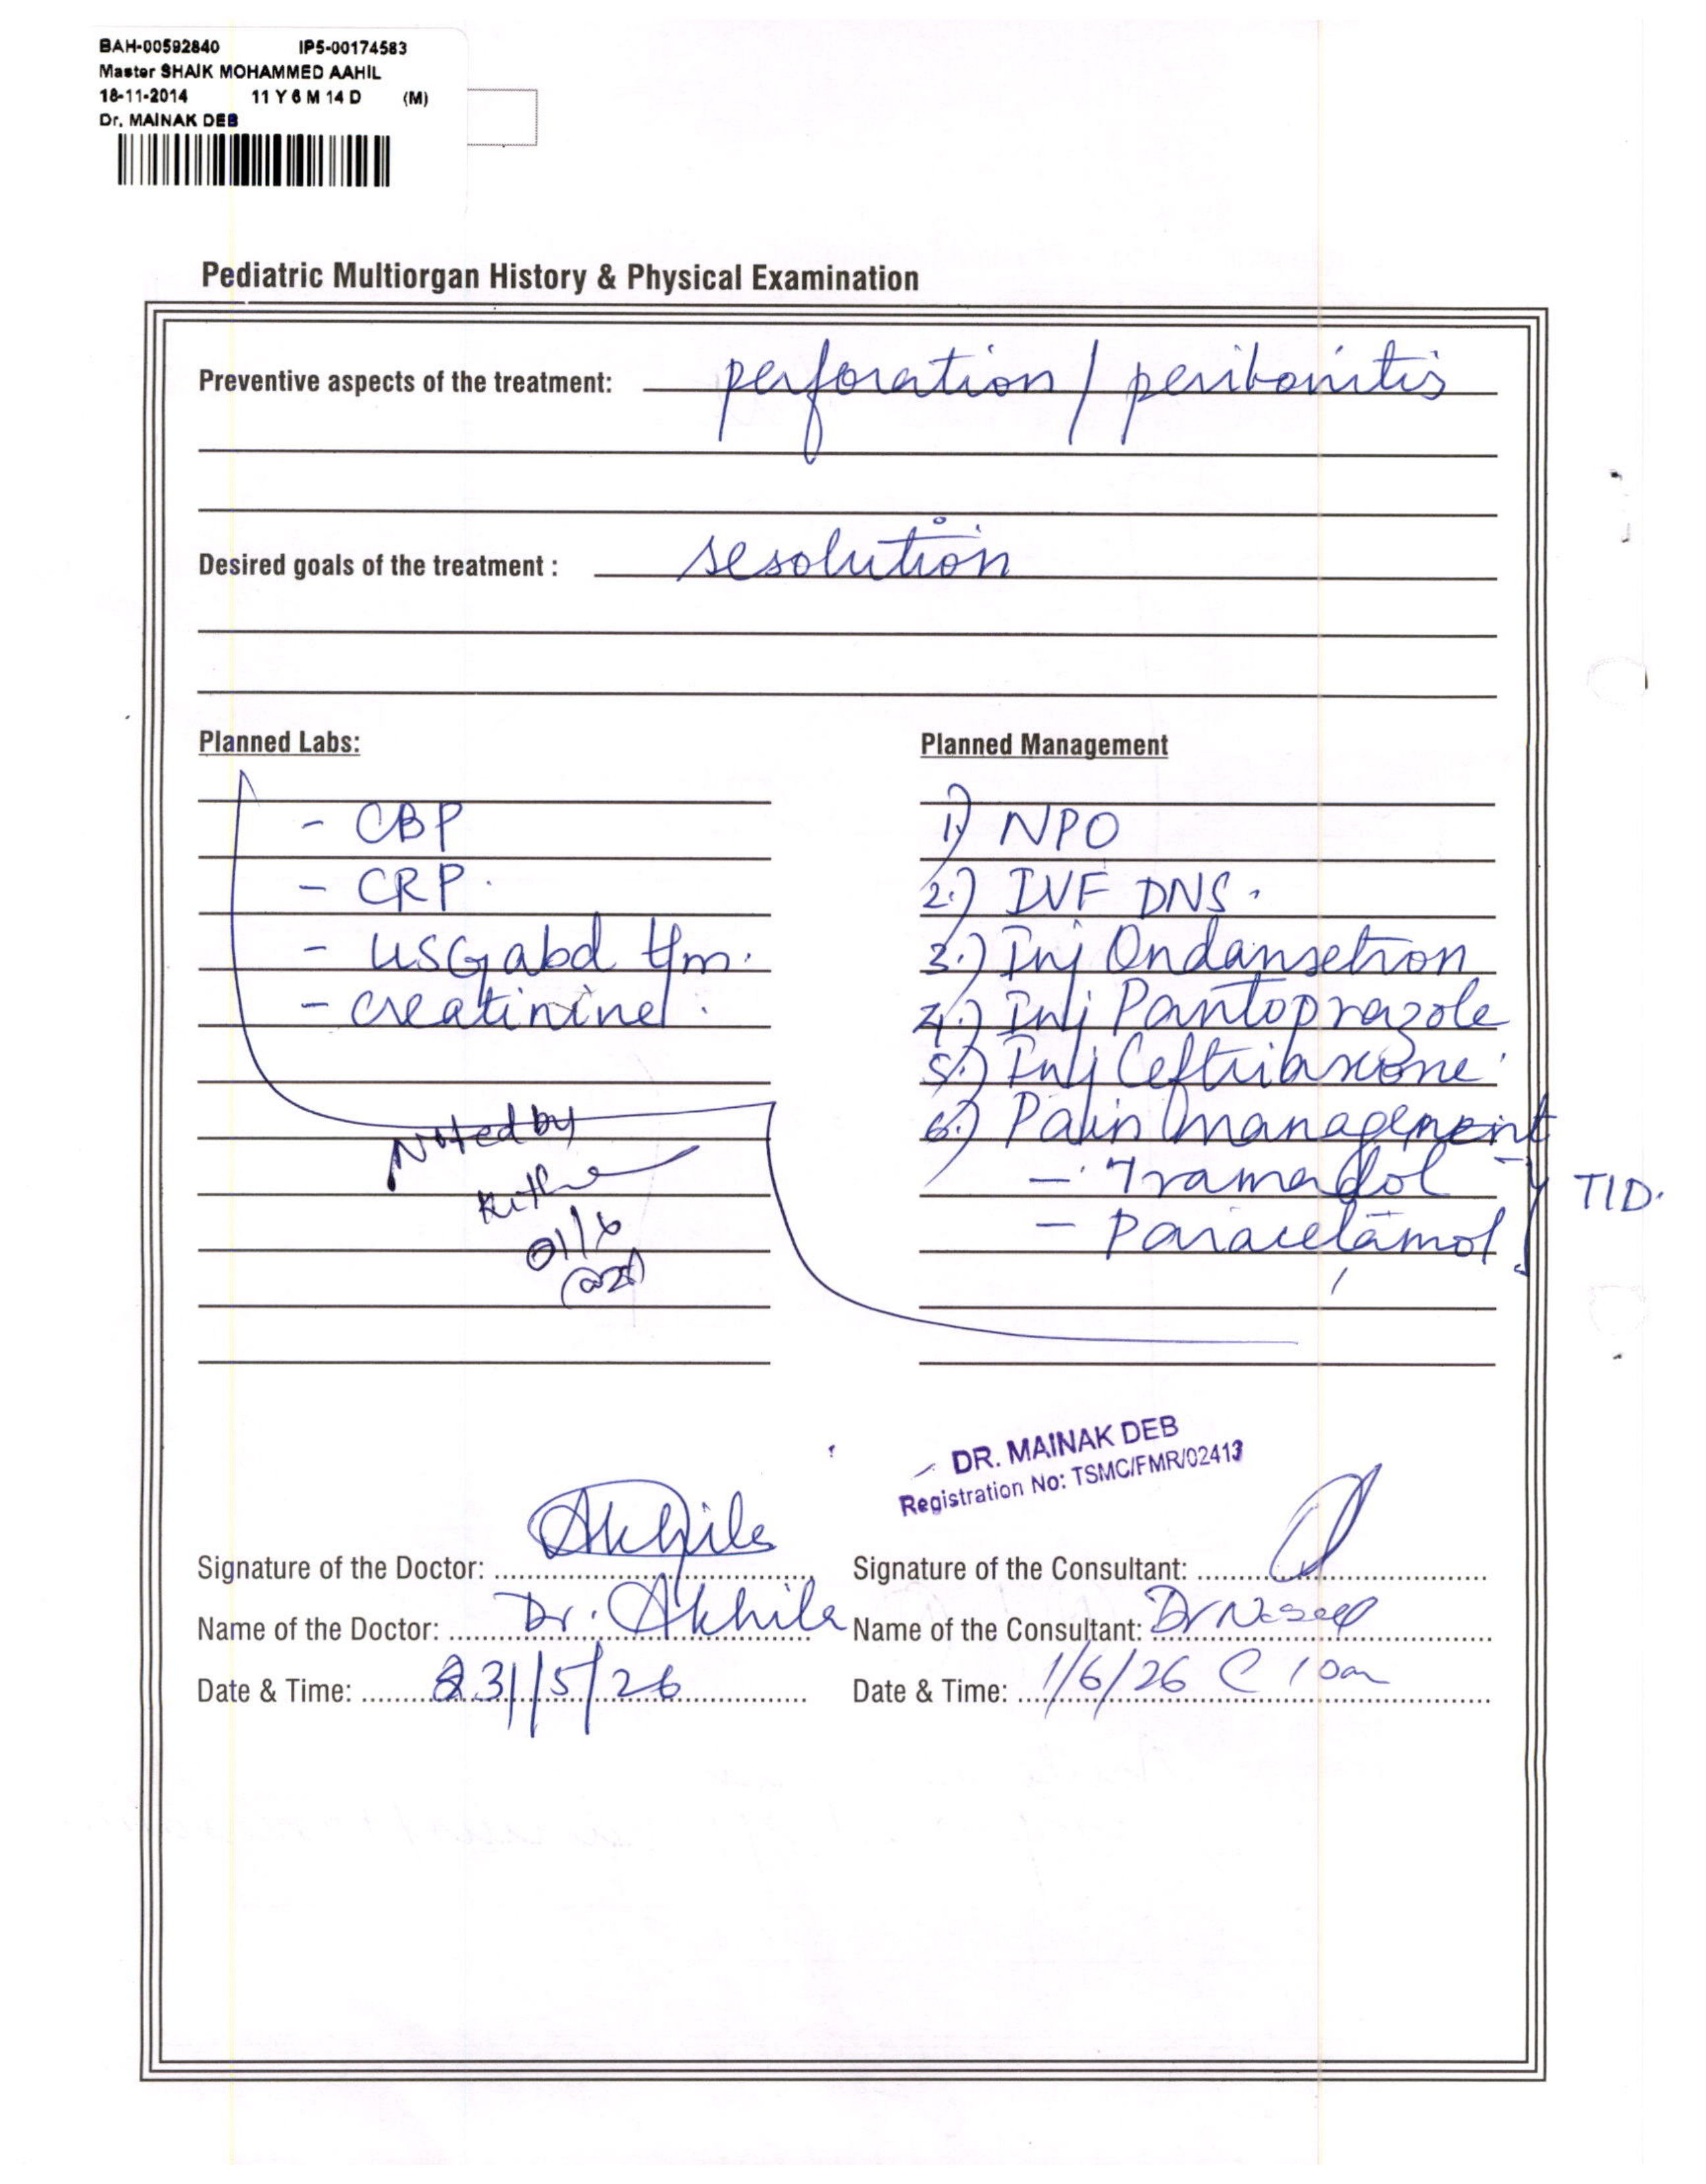 BAH-00592840 IP5-00174583
Master SHAIK MOHAMMED AAHIL
18-11-2014 11 Y 6 M 14 D (M)
Dr. MAINAK DEB
Pediatric Multiorgan History & Physical Examination
Preventive aspects of the treatment: perforation / peritonitis
Desired goals of the treatment : resolution
Planned Labs:
- CBP
- CRP.
- USG abd
- creatinine.
Noted by
01/6
Planned Management
1) NPO
2.) IVF DNS.
3.) Inj Ondansetron
4.) Inj Pantoprazole
5.) Inj Ceftriaxone
6.) Pain management
- Tramadol
- Paracetamol
TID.
DR. MAINAK DEB
Registration No: TSMC/FMR/02413
Signature of the Doctor: Akhila
Name of the Doctor: Dr. Akhila
Date & Time: 31/5/26
Signature of the Consultant:
Name of the Consultant: Dr
Date & Time: 1/6/26 @ 10am